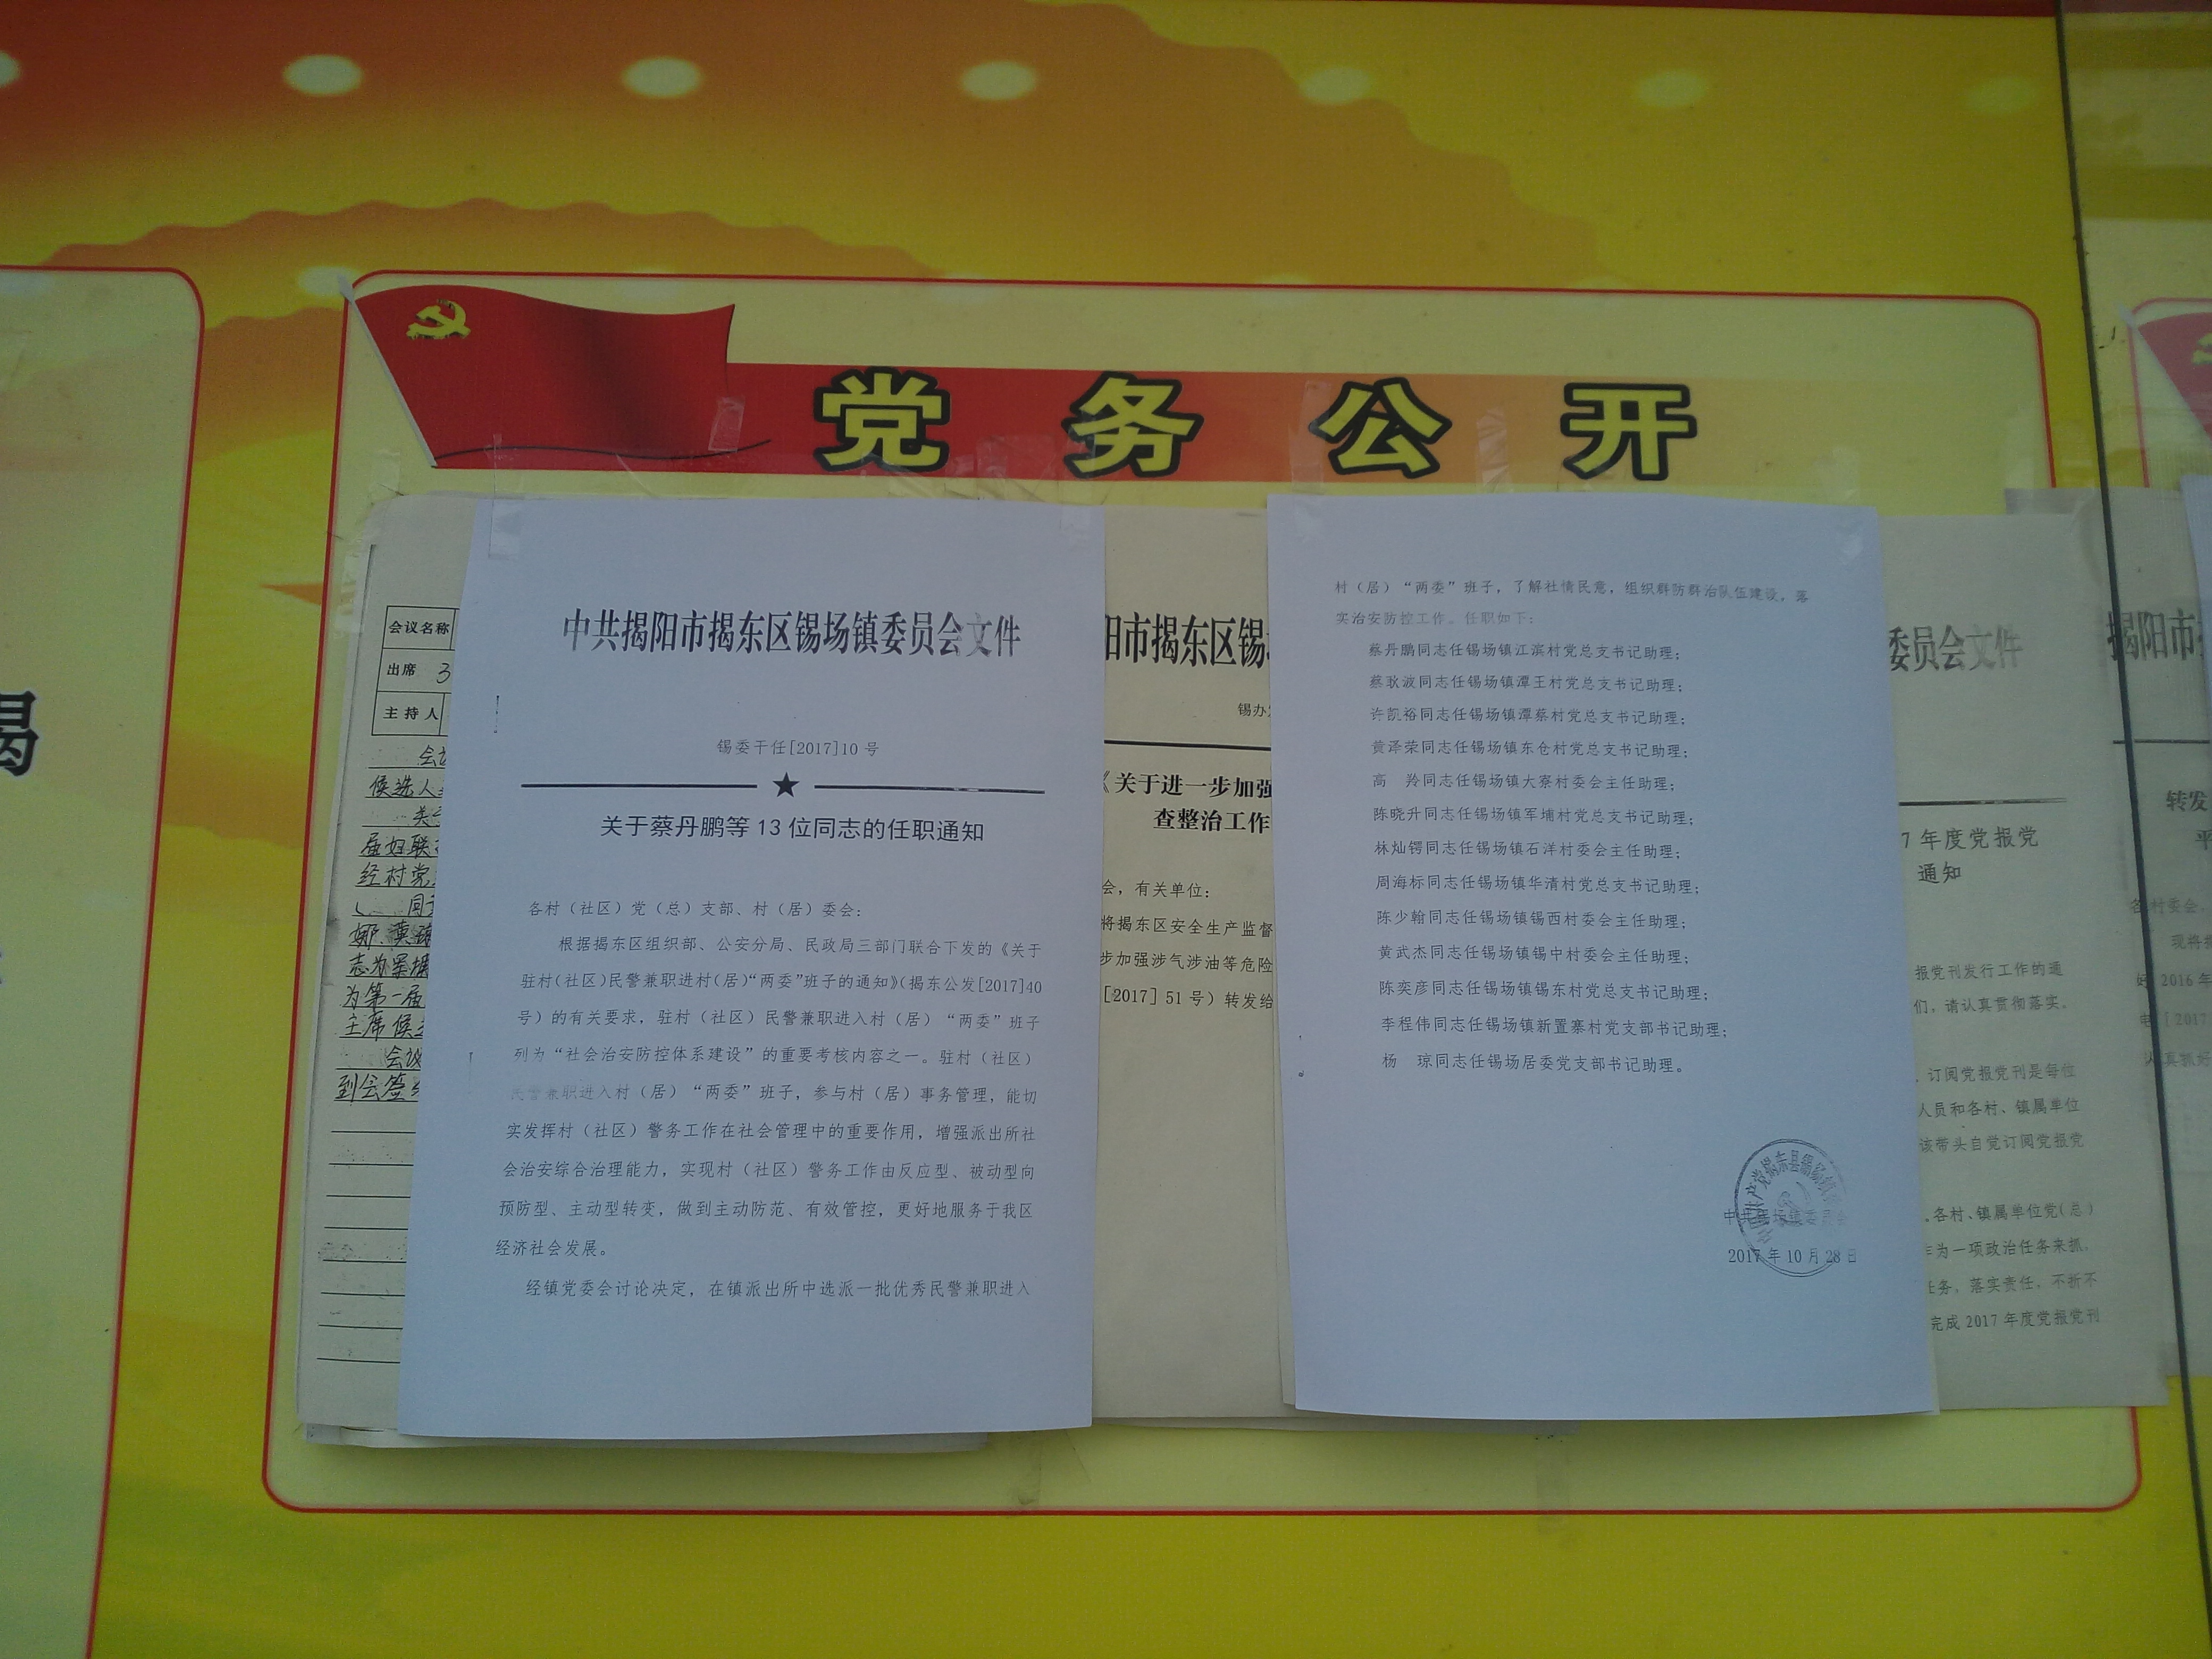 党务公开
中共揭阳市揭东区锡场镇委员会文件
锡委干任[2017]10号
关于蔡丹鹏等13位同志的任职通知
各村（社区）党（总）支部、村（居）委会：
根据揭东区组织部、公安分局、民政局三部门联合下发的《关于
驻村(社区)民警兼职进村(居)“两委”班子的通知》(揭东公发[2017]40
号）的有关要求，驻村（社区）民警兼职进入村（居）“两委”班子
列为“社会治安防控体系建设”的重要考核内容之一。驻村（社区）
民警兼职进入村（居）“两委”班子，参与村（居）事务管理，能切
实发挥村（社区）警务工作在社会管理中的重要作用，增强派出所社
会治安综合治理能力，实现村（社区）警务工作由反应型、被动型向
预防型、主动型转变，做到主动防范、有效管控，更好地服务于我区
经济社会发展。
经镇党委会讨论决定，在镇派出所中选派一批优秀民警兼职进入
村（居）“两委”班子，了解社情民意，组织群防群治队伍建设，落
实治安防控工作。任职如下：
蔡丹鹏同志任锡场镇江滨村党总支书记助理；
蔡耿波同志任锡场镇潭王村党总支书记助理；
许凯裕同志任锡场镇潭蔡村党总支书记助理；
黄泽荣同志任锡场镇东仓村党总支书记助理；
高　羚同志任锡场镇大寮村委会主任助理；
陈晓升同志任锡场镇军埔村党总支书记助理；
林灿锷同志任锡场镇石洋村委会主任助理；
周海标同志任锡场镇华清村党总支书记助理；
陈少翰同志任锡场镇锡西村委会主任助理；
黄武杰同志任锡场镇锡中村委会主任助理；
陈奕彦同志任锡场镇锡东村党总支书记助理；
李程伟同志任锡场镇新置寨村党支部书记助理；
杨　琼同志任锡场居委党支部书记助理。
中共锡场镇委员会
2017年10月28日
会议名称
出席 3
主持人
候选人
届妇联
经村党
为第一届
主席候
会议
到会签
阳市揭东区锡
锡办
《关于进一步加强
查整治工作
会，有关单位：
将揭东区安全生产监督
步加强涉气涉油等危险
[2017] 51号）转发给
委员会文件
7年度党报党
通知
报党刊发行工作的通
们，请认真贯彻落实。
订阅党报党刊是每位
人员和各村、镇属单位
该带头自觉订阅党报党
各村、镇属单位党(总)
作为一项政治任务来抓，
任务，落实责任，不折不
完成2017年度党报党刊
揭阳市
转发
平
各村委会、
现将
好2016年
电[2017
认真抓好